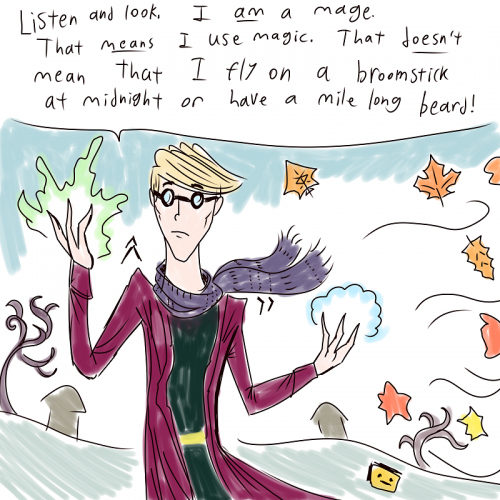 Listen and look, I am a mage.
That means I use magic. That doesn't
mean that I fly on a broomstick
at midnight or have a mile long beard!